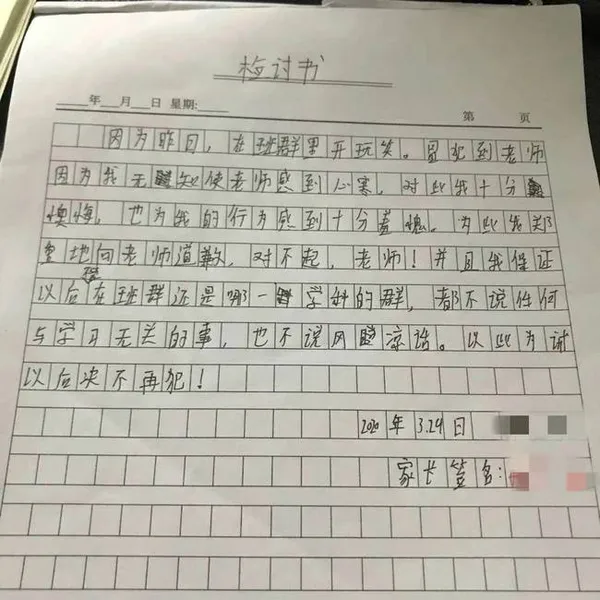 检讨书
___年___月___日 星期:___ 第 页
因为昨日，在班群里开玩笑。冒犯到老师
因为我无知使老师感到心寒，对此我十分
懊悔，也为我的行为感到十分羞愧。为此我郑
重地向老师道歉，对不起，老师！并且我保证
以后在班群还是哪一学科的群，都不说任何
与学习无关的事，也不说风凉话。以此为诫
以后决不再犯！
2020年3.24日
家长签名: